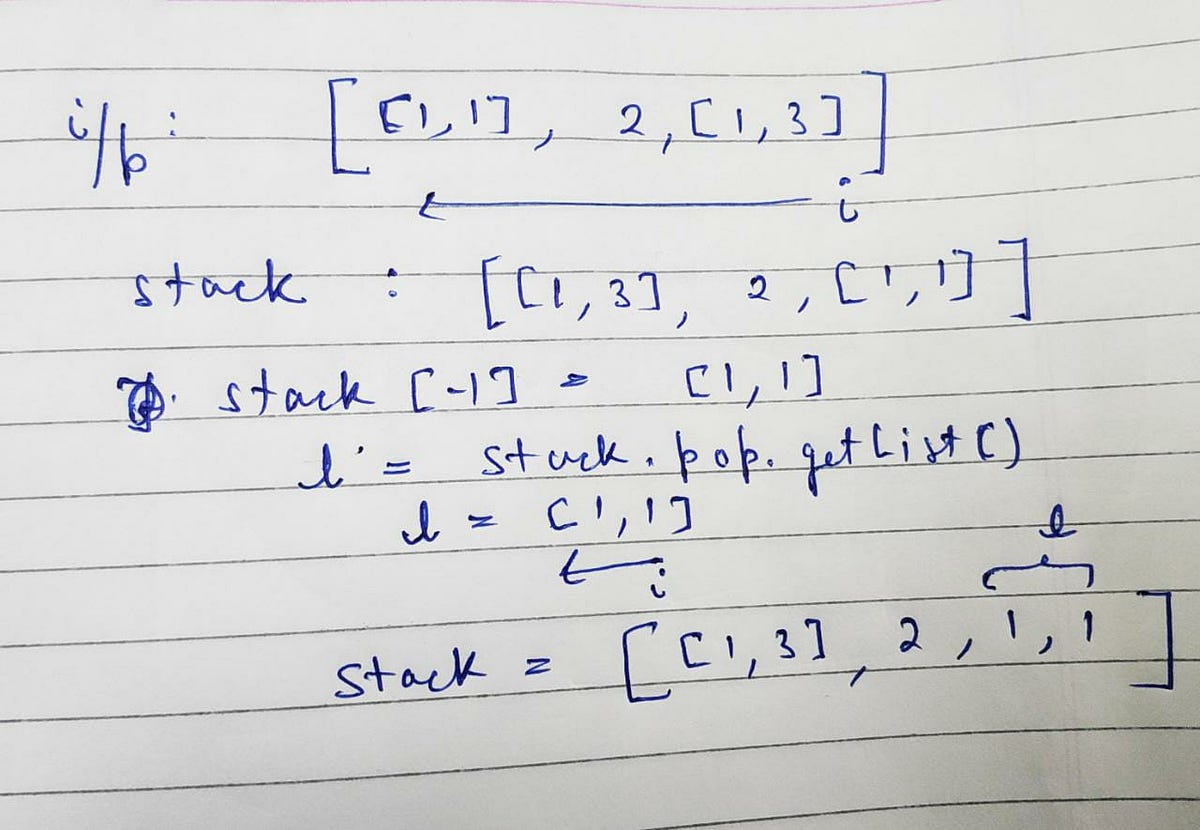 i/p : [ [1,1], 2, [1,3] ]
i
stack : [ [1,3], 2, [1,1] ]
stack [-1] = [1,1]
l = stack.pop.getList()
l = [1,1]
i
l
stack = [ [1,3], 2, 1, 1 ]